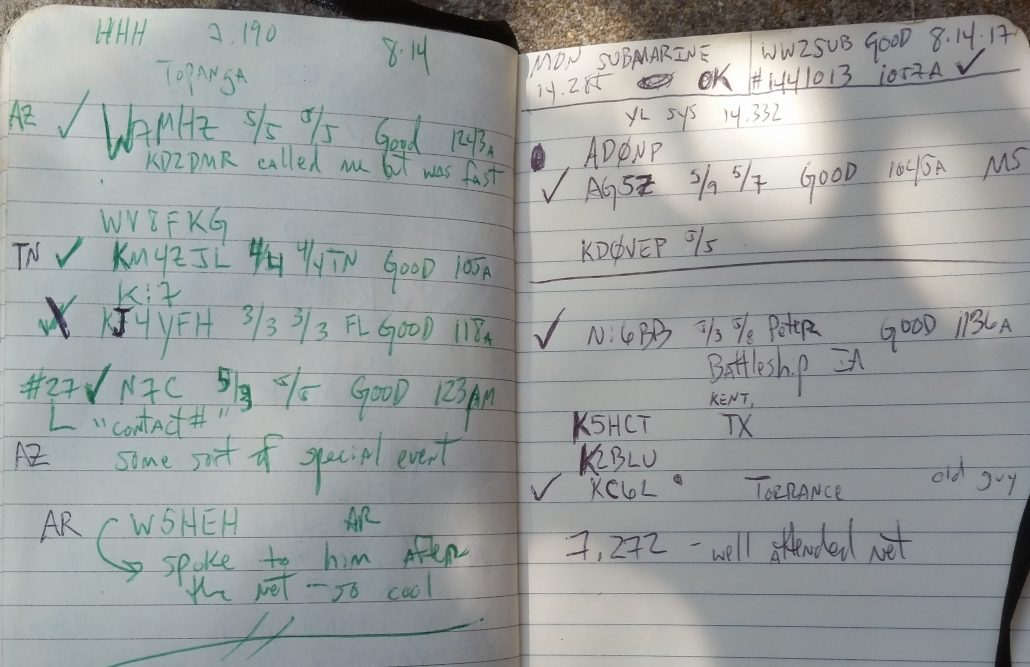 HHH 7.190 8.14
TOPANGA
AZ ✓ W7MHZ 5/5 5/5 Good 1243A
KD2DMR called me but was fast
WV8FKG
TN ✓ KM4ZJL 4/4 4/4 TN GOOD 105A
Ki7
KJ4YFH 3/3 3/3 FL GOOD 118A
#27 ✓ N7C 5/3 5/5 GOOD 123AM
"contact #"
AZ some sort of special event
AR W5HEH AR
spoke to him AFTER
the NET - so cool
MON SUBMARINE WW2SUB GOOD 8.14.17
14.285 OK #1441013 1057A ✓
YL SYS 14.332
ADØNP
✓ AG5Z 5/9 5/7 GOOD 1045A MS
KDØVEP 5/5
✓ Ni6BB 3/3 5/8 Peter GOOD 1136A
Battleship IA
KENT,
K5HCT TX
K2BLU
✓ KC6L TORRANCE old guy
7,272 - well Attended net